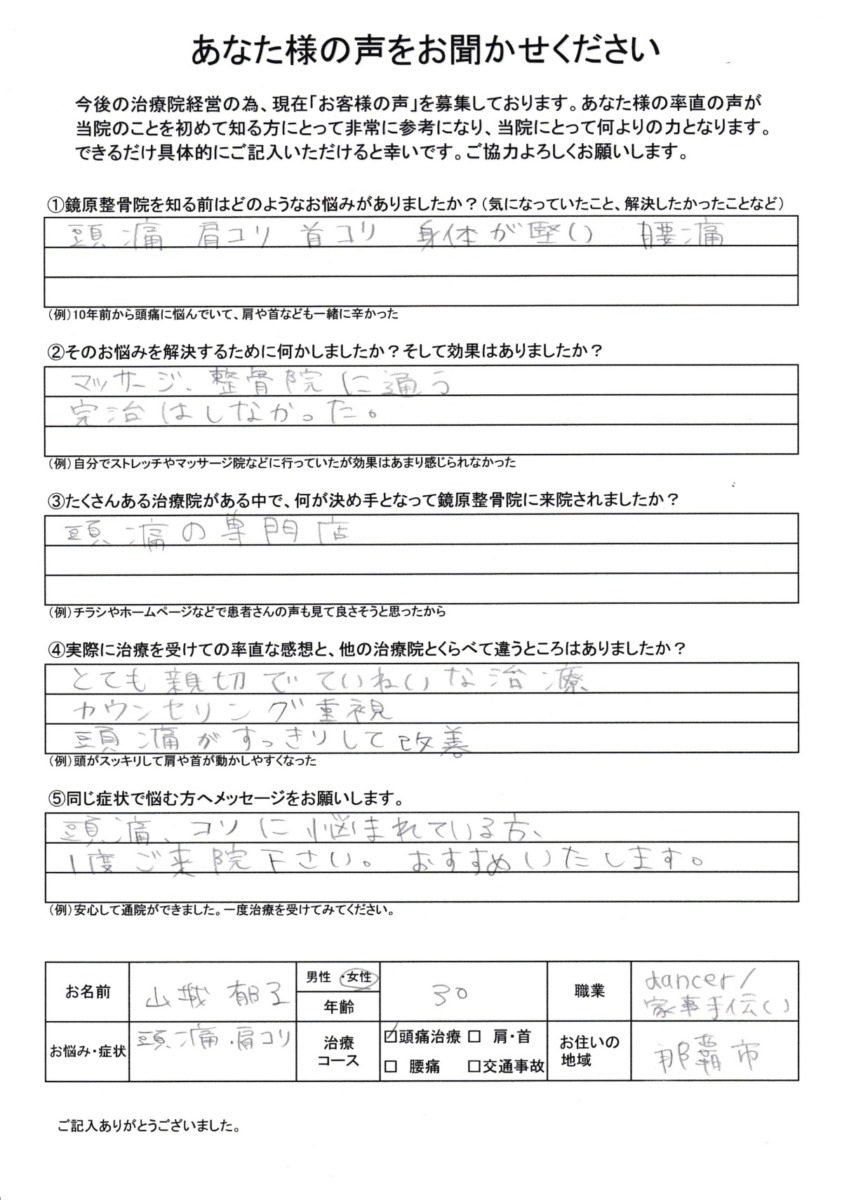 あなた様の声をお聞かせください
今後の治療院経営の為、現在「お客様の声」を募集しております。あなた様の率直の声が
当院のことを初めて知る方にとって非常に参考になり、当院にとって何よりの力となります。
できるだけ具体的にご記入いただけると幸いです。ご協力よろしくお願いします。
①鏡原整骨院を知る前はどのようなお悩みがありましたか？（気になっていたこと、解決したかったことなど）
頭痛 肩コリ 首コリ 身体が堅い 腰痛
（例）10年前から頭痛に悩んでいて、肩や首なども一緒に辛かった
②そのお悩みを解決するために何かしましたか？そして効果はありましたか？
マッサージ、整骨院に通う
完治はしなかった。
（例）自分でストレッチやマッサージ院などに行っていたが効果はあまり感じられなかった
③たくさんある治療院がある中で、何が決め手となって鏡原整骨院に来院されましたか？
頭痛の専門店
（例）チラシやホームページなどで患者さんの声も見て良さそうと思ったから
④実際に治療を受けての率直な感想と、他の治療院とくらべて違うところはありましたか？
とても親切でていねいな治療
カウンセリング重視
頭痛がすっきりして改善
（例）頭がスッキリして肩や首が動かしやすくなった
⑤同じ症状で悩む方へメッセージをお願いします。
頭痛、コリに悩まれている方、
1度ご来院下さい。おすすめいたします。
（例）安心して通院ができました。一度治療を受けてみてください。
お名前 山城 郁子 男性・女性 年齢 30 職業 dancer/
家事手伝い
お悩み・症状 頭痛・肩コリ 治療コース ☑頭痛治療 □ 肩・首
□ 腰痛 □交通事故
お住いの地域 那覇市
ご記入ありがとうございました。